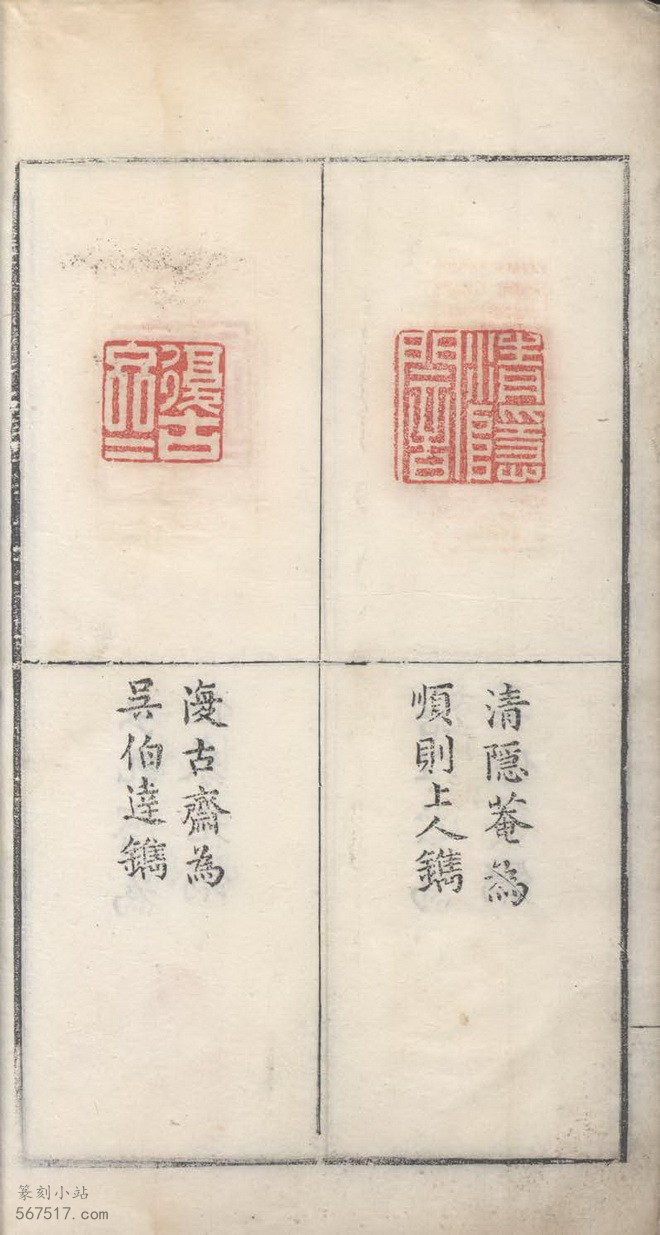 清隱
清隐菴為
順則上人鐫
復古
齋
復古齋為
吴伯達鐫
篆刻小站
567517.com